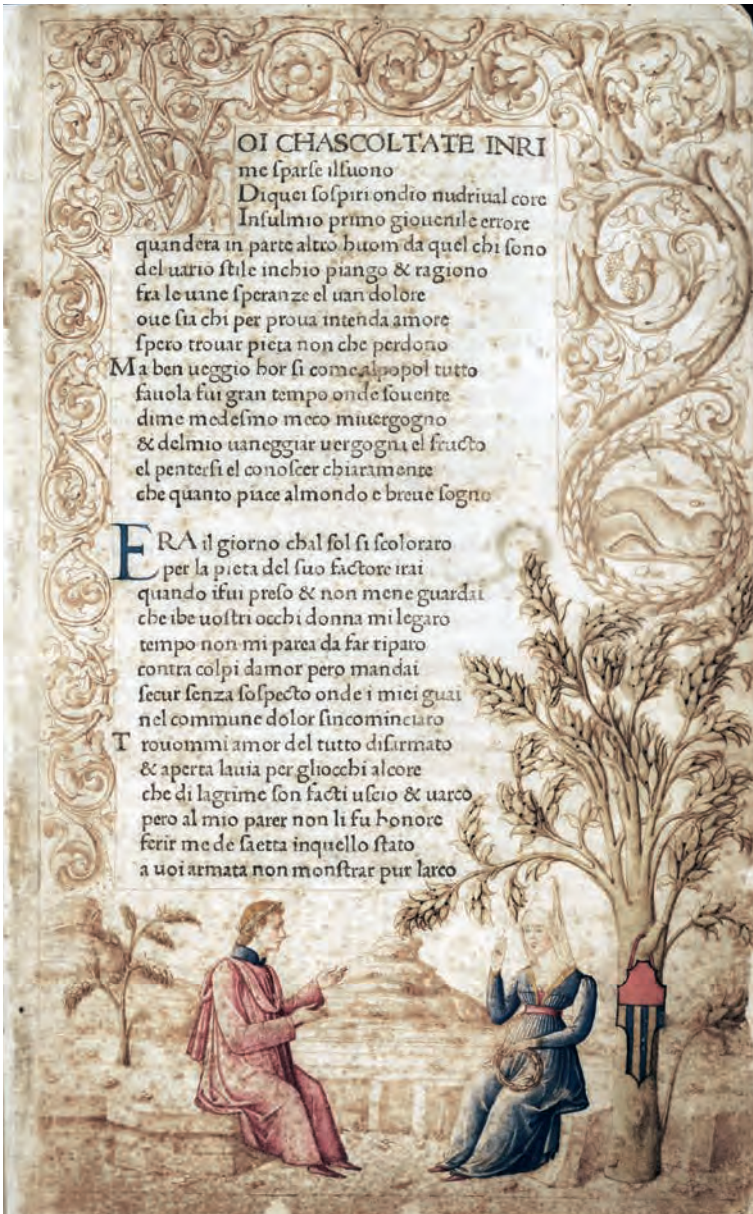 VOI CHASCOLTATE INRI
me ſparſe ilſuono
Diquei ſoſpiri ondio nudriual core
Inſulmio primo giouenile errore
quandera in parte altro huom da quel chi ſono
del uario ſtile inchio piango & ragiono
fra le uane ſperanze el uan dolore
oue ſia chi per proua intenda amore
ſpero trouar pieta non che perdono
Ma ben ueggio hor ſi come alpopol tutto
fauola fui gran tempo onde ſouente
dime medeſmo meco miuergogno
& delmio uaneggiar uergogna el fructo
el penterſi el conoſcer chiaramente
che quanto piace almondo e breue ſogno
ERA il giorno chal ſol ſi ſcoloraro
per la pieta del ſuo factore irai
quando ifui preſo & non mene guardai
che ibe uoſtri occhi donna mi legaro
tempo non mi parea da far riparo
contra colpi damor pero mandai
ſecur ſenza ſoſpecto onde i miei guai
nel commune dolor ſincominciaro
Trouommi amor del tutto diſarmato
& aperta lauia per gliocchi alcore
che di lagrime ſon facti uſcio & uarco
pero al mio parer non li fu honore
ferir me de ſaetta inquello ſtato
a uoi armata non monſtrar pur larco